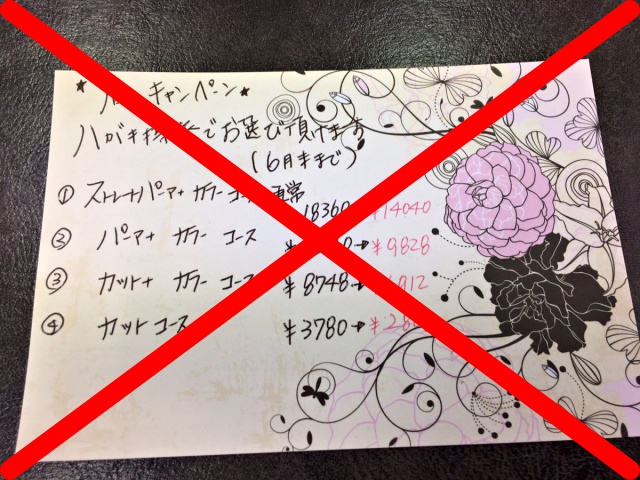 ★ キャンペーン★
ハガキ でお選び頂けます
(6月末まで)
① ストレートパーマ+ カラー コース 通常
18360→¥14040
② パーマ+ カラー コース ¥ →¥9828
③ カット+ カラー コース ¥8748→ 912
④ カットコース ¥3780→¥